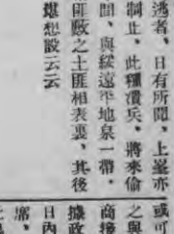 逃者、日有所聞、上峯亦
制止、此種潰兵、將來偷
間、與綏遠平地泉一帶、
匪嘅之土匪相表裏、其後
堪想設云云
或可
之與
商接
據政
日內
席、